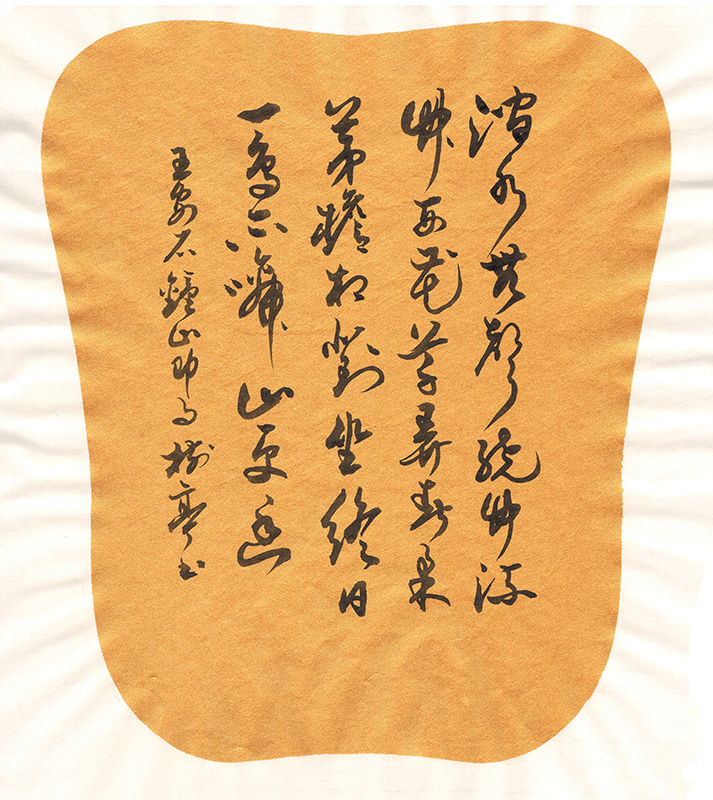 澗水無聲繞竹流
竹西花草弄春柔
茅檐相對坐終日
一鳥不啼山更幽
王安石鐘山即事樹亭書